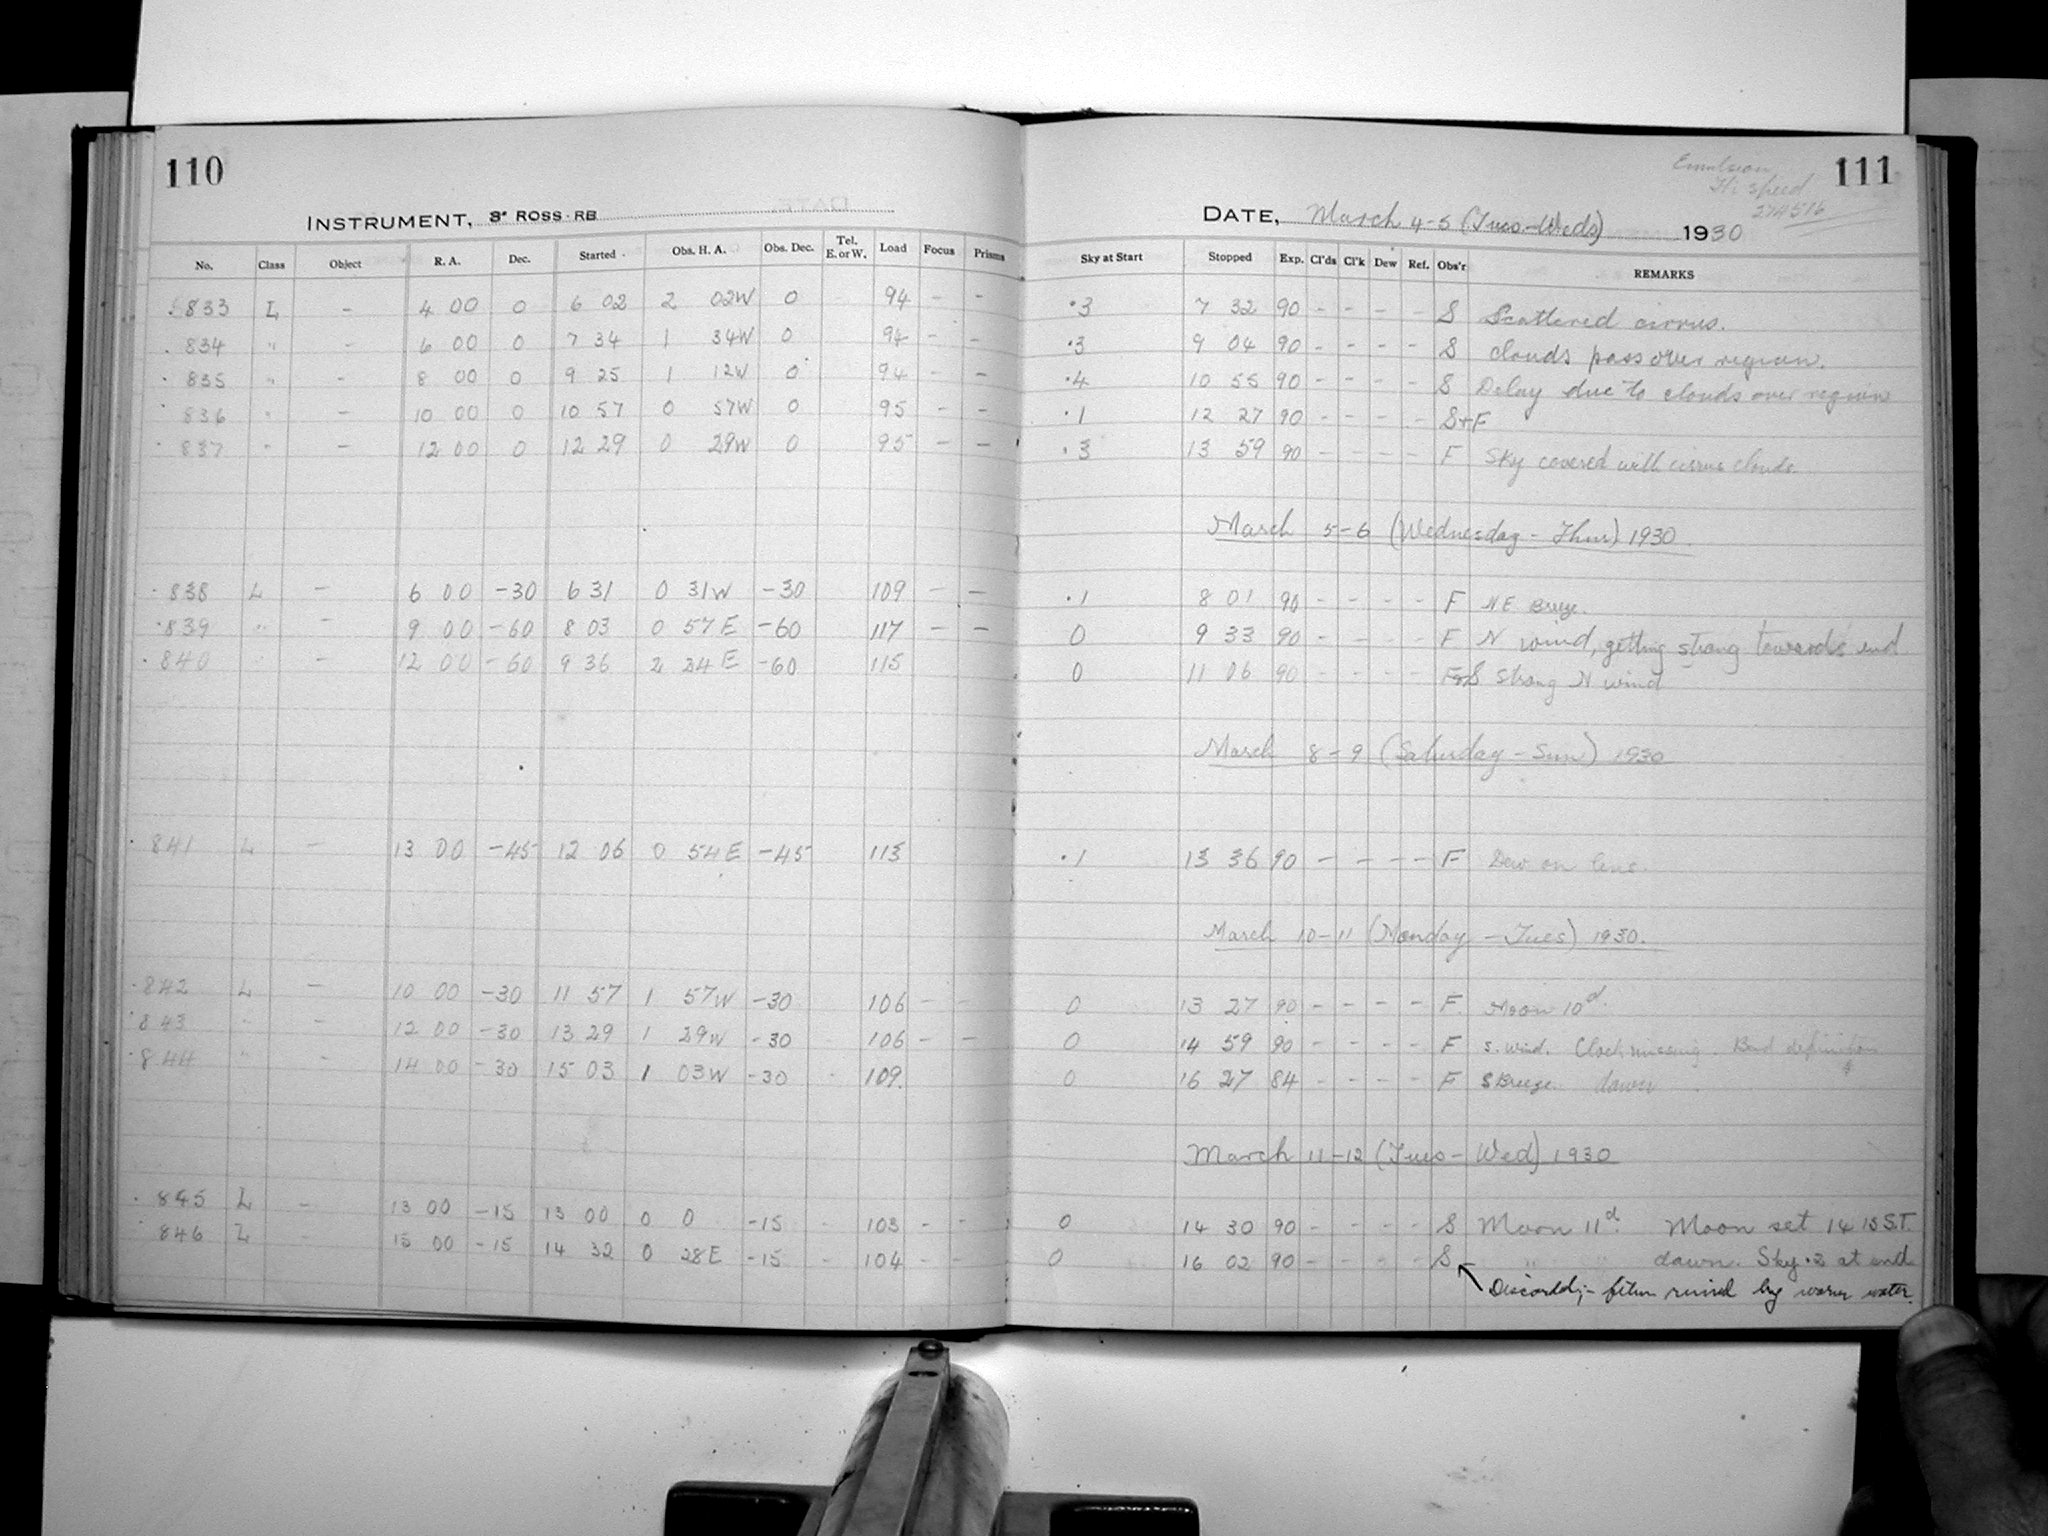 110
INSTRUMENT, 3" ROSS-RB
No. Class Object R. A. Dec. Started Obs. H. A. Obs. Dec. Tel. E. or W. Load Focus Prisms
833 L - 4 00 0 6 02 2 02W 0 94 - -
834 " - 6 00 0 7 34 1 34W 0 94 - -
835 " - 8 00 0 9 25 1 12W 0 94 - -
836 " - 10 00 0 10 57 0 57W 0 95 - -
837 " - 12 00 0 12 29 0 29W 0 95 - -
838 L - 6 00 -30 6 31 0 31W -30 109 - -
839 " - 9 00 -60 8 03 0 57E -60 117 - -
840 " - 12 00 -60 9 36 2 24E -60 115
841 L - 13 00 -45 12 06 0 54E -45 113
842 L - 10 00 -30 11 57 1 57W -30 106 - -
843 " - 12 00 -30 13 29 1 29W -30 106 - -
844 " - 14 00 -30 15 03 1 03W -30 109.
845 L - 13 00 -15 13 00 0 0 -15 103 - -
846 L - 15 00 -15 14 32 0 28E -15 104 - -
Emulsion
Hi speed
111
DATE, March 4-5 (Tues-Weds) 1930
Sky at Start Stopped Exp. Cl'ds Cl'k Dew Ref. Obs'r REMARKS
.3 7 32 90 - - - - S Scattered cirrus.
.3 9 04 90 - - - - S clouds pass over region.
.4 10 55 90 - - - - S Delay due to clouds over region
.1 12 27 90 - - - - S+F
.3 13 59 90 - - - - F Sky covered with cirrus clouds.
March 5-6 (Wednesday - Thur) 1930.
.1 8 01 90 - - - - F NE Breeze.
0 9 33 90 - - - - F N wind, getting strong towards end
0 11 06 90 - - - - F+S Strong N wind
March 8-9 (Saturday - Sun) 1930
.1 13 36 90 - - - - F Dew on lens.
March 10-11 (Monday - Tues) 1930.
0 13 27 90 - - - - F. Moon 10d.
0 14 59 90 - - - - F S. wind. Clock missing. Bad definition
0 16 27 84 - - - - F S Breeze. dawn.
March 11-12 (Tues - Wed) 1930
0 14 30 90 - - - - S Moon 11d. Moon set 14 15 S.T.
0 16 02 90 - - - - S " " dawn. Sky .2 at end
Discarded;- film ruined by warm water.